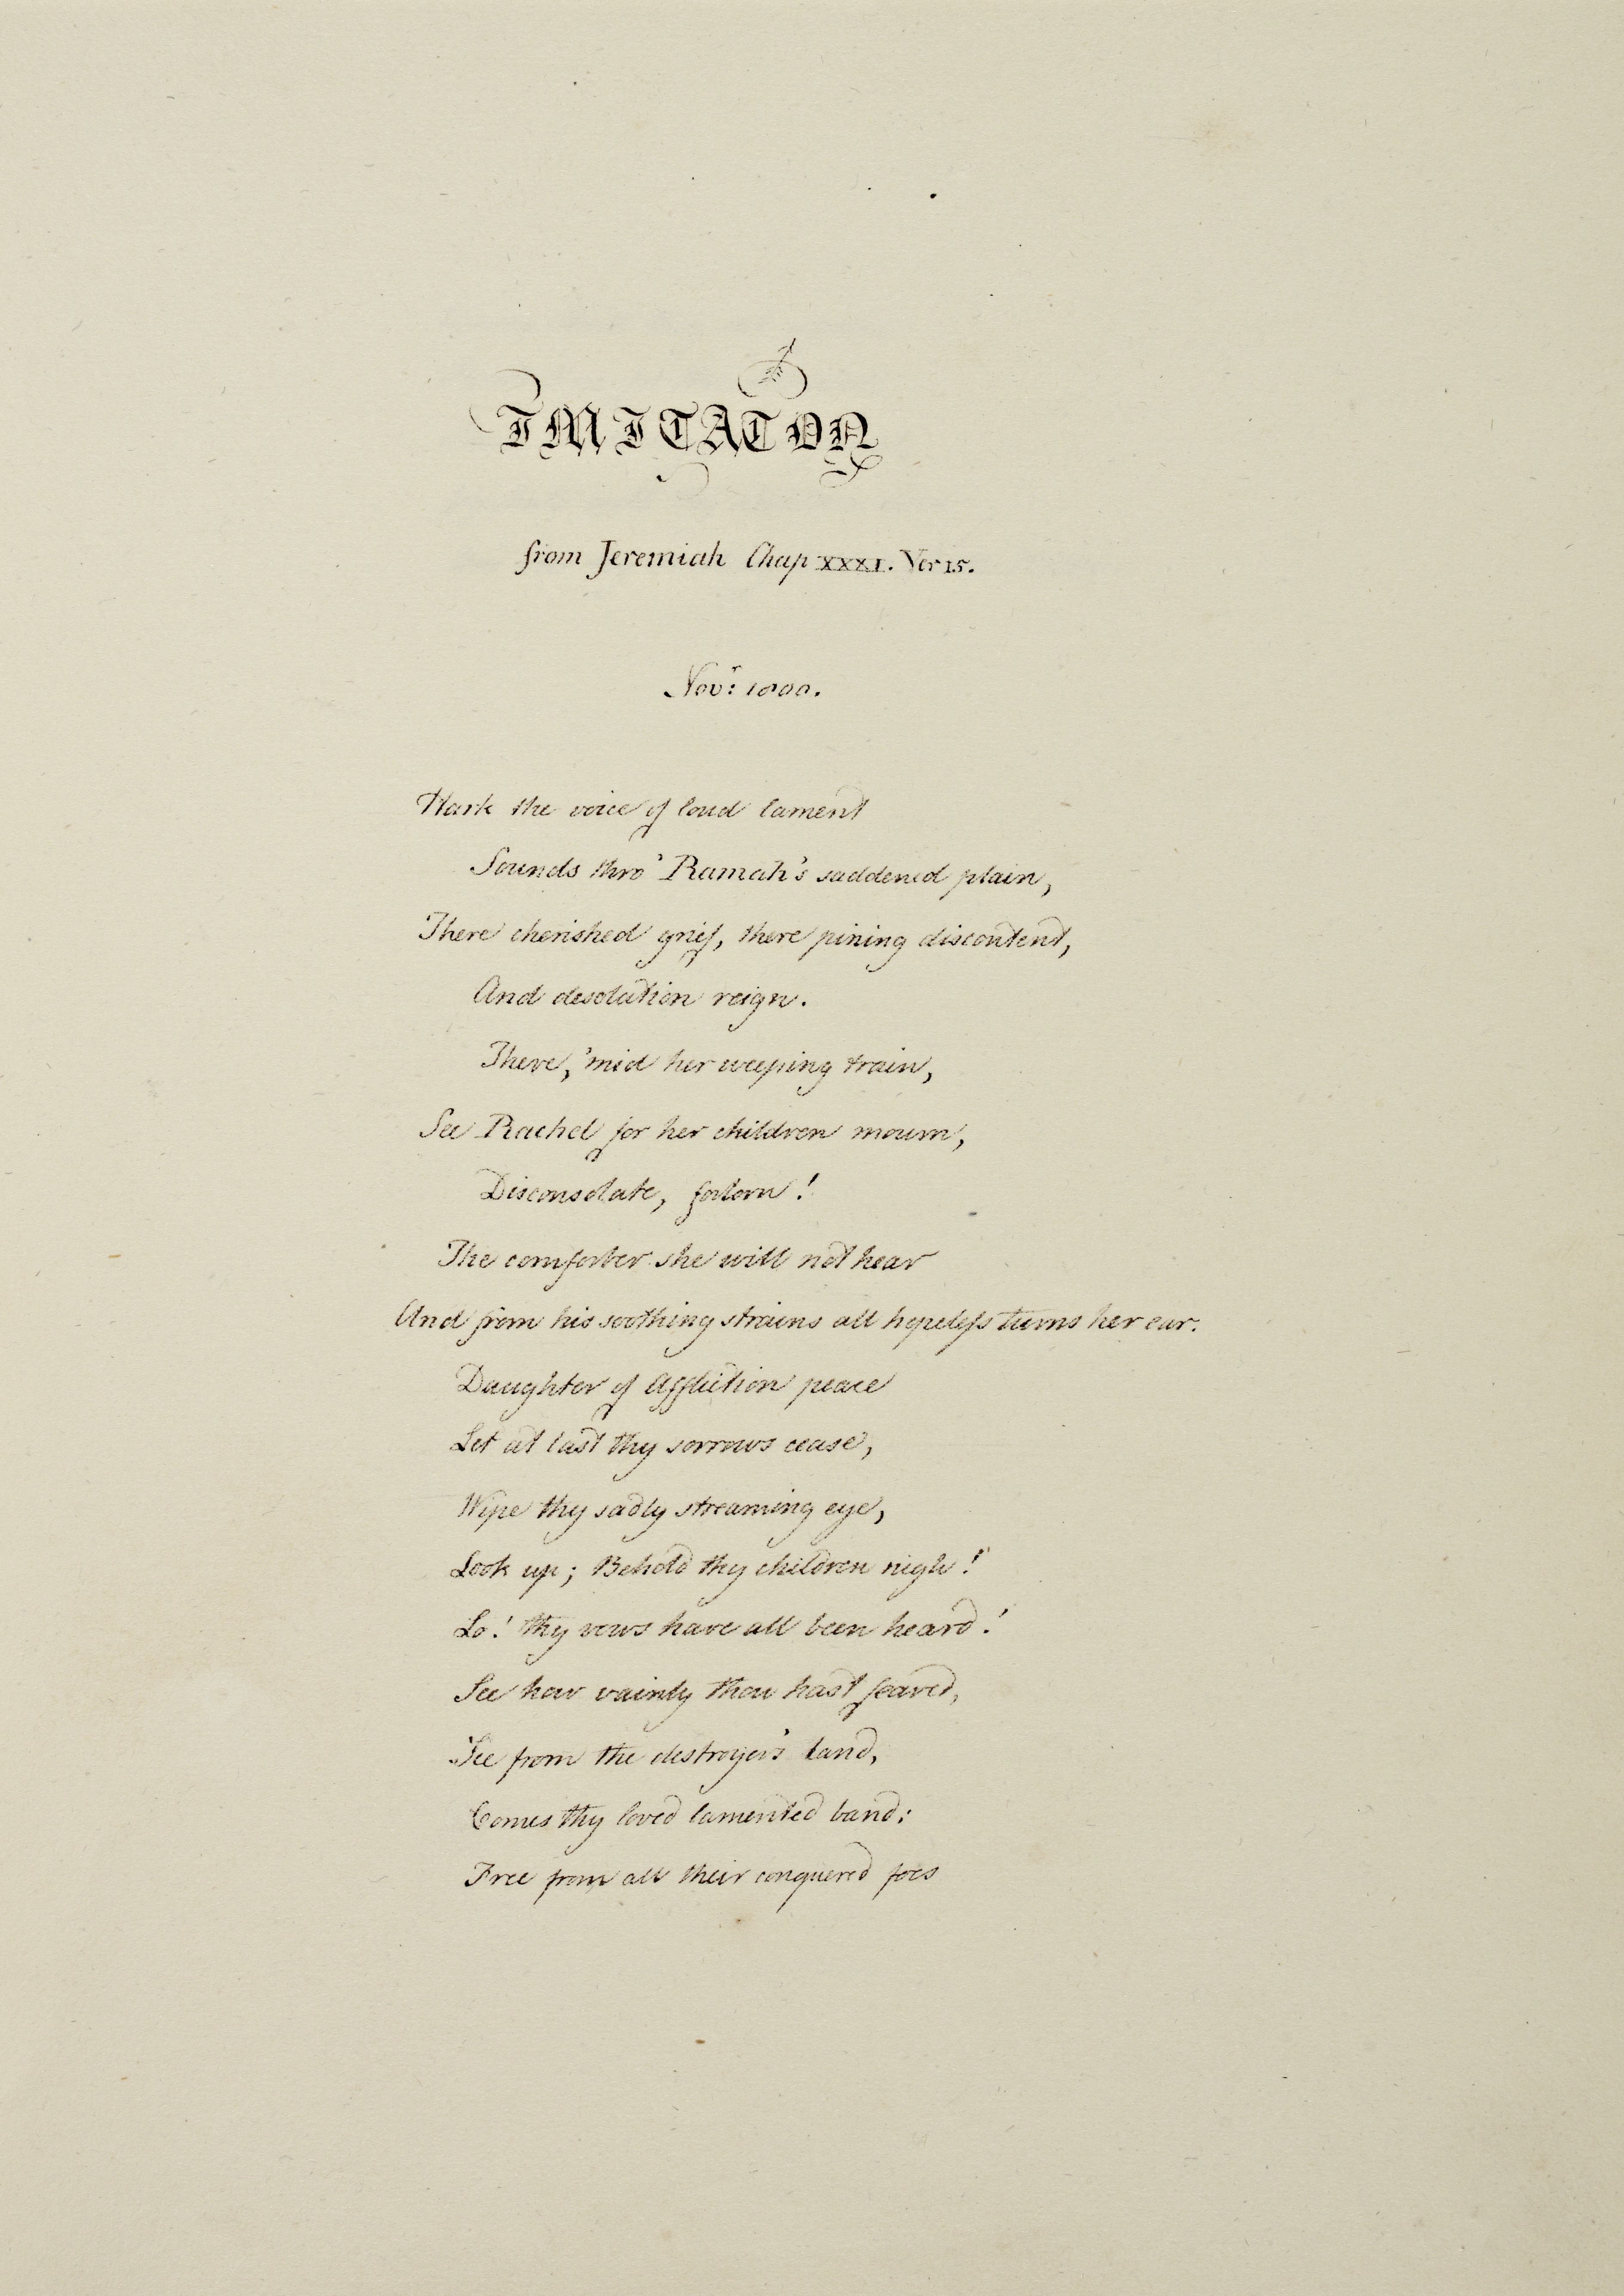 IMITATON
from Jeremiah Chap XXXI. Ver 15.
Novr: 1800.
Hark the voice of loud lament
Sounds thro' Ramah's saddened plain,
There cherished grief, there pining discontent,
And desolation reign.
There, 'mid her weeping train,
See Rachel for her children mourn,
Disconsolate, forlorn!
The comforter she will not hear
And from his soothing strains all hopeless turns her ear.
Daughter of Affliction peace
Let at last thy sorrows cease,
Wipe thy sadly streaming eye,
Look up; Behold thy children nigh!
Lo! thy vows have all been heard!
See how vainly thou hast feared,
See from the destroyer's land,
Comes thy loved lamented band:
Free from all their conquered foes